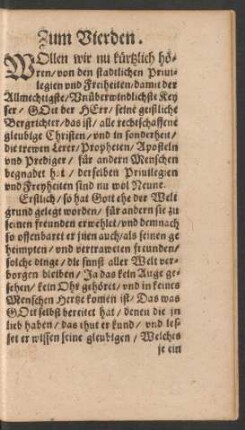 Zum Vierden.
WOllen wir nu kürtzlich hö-
ren/ von den stadtlichen Priui-
legien vnd Freiheiten/ damit der
Allmechtigste/ Vnüberwindlichste Key
ser/ GOtt der HErr/ seine geistliche
Bergrichter/ das ist/ alle rechtschaffene
gleubige Christen/ vnd in sonderheit/
die trewen Lerer/ Propheten/ Aposteln
vnd Prediger/ für andern Menschen
begnadet hat/ derselben Priuilegien
vnd Freyheiten sind nu wol Neune.
Erstlich/ so hat Gott ehe der Welt
grund gelegt worden/ für andern sie zu
seinen freunden erwehlet/ vnd demnach
so offenbaret er jnen auch/ als seinen ge
heimpten/ vnd vertraweten freunden/
solche dinge/ die sunst aller Welt ver-
borgen bleiben/ Ja das kein Auge ge-
sehen/ kein Ohr gehöret/ vnd in keines
Menschen Hertze komen ist/ Das was
GOtt selbst bereitet hat/ denen die jn
lieb haben/ das thut er kund/ vnd les-
set er wissen seine gleubigen/ Welches
je ein